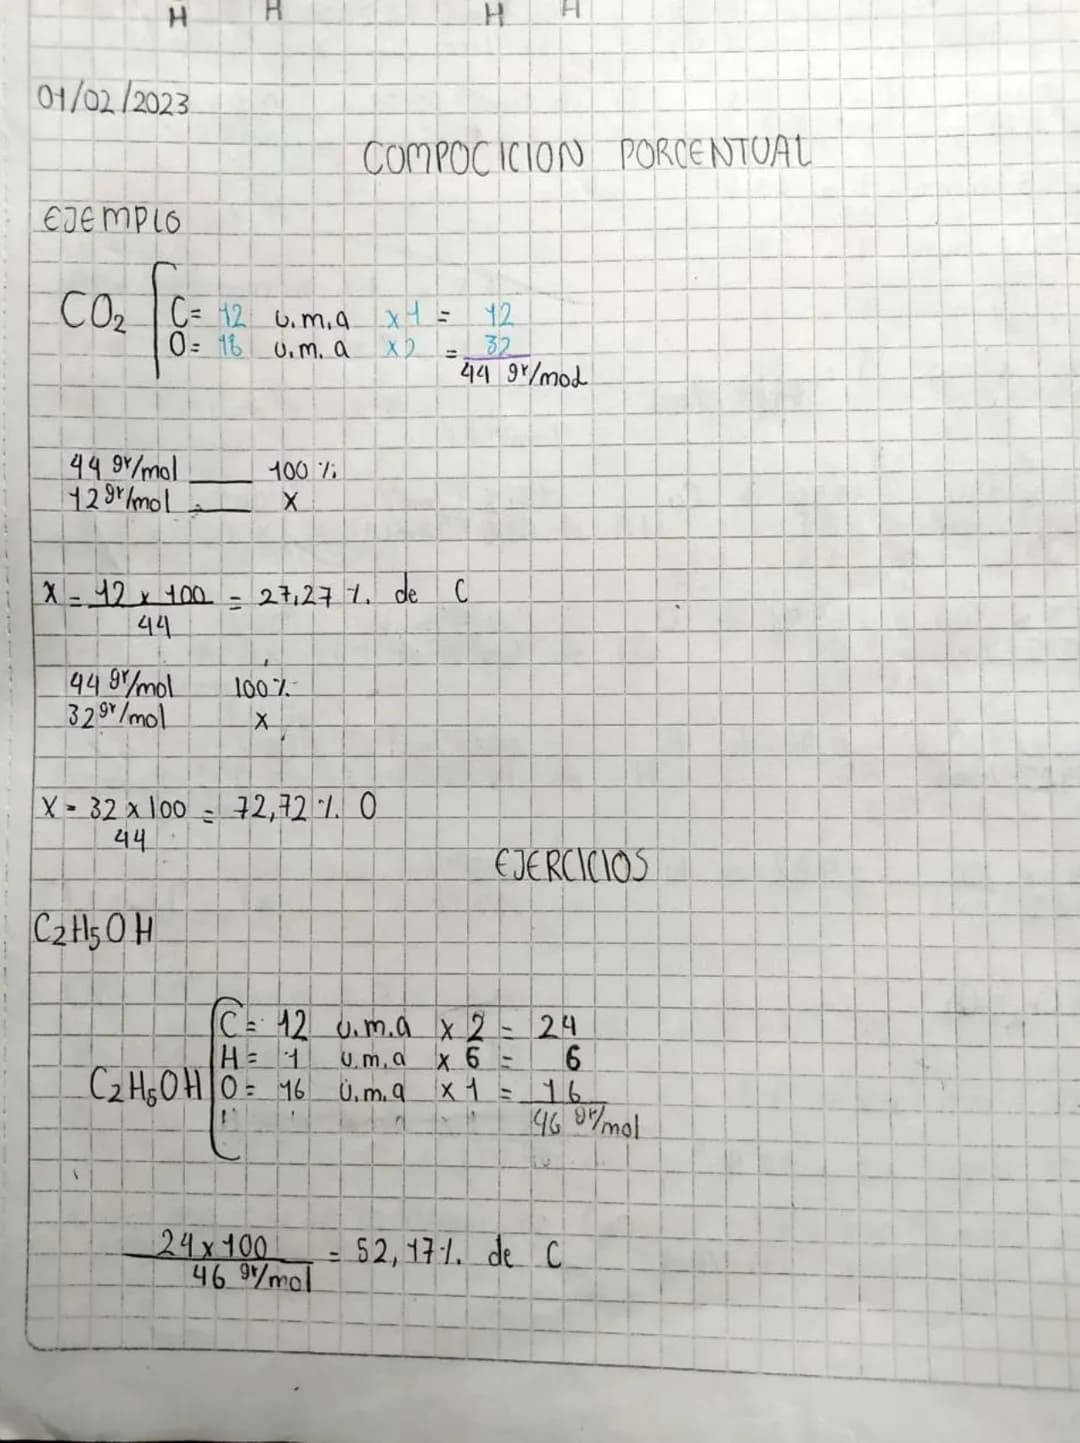 H H H H
01/02/2023
COMPOCICION PORCENTUAL
EJEMPLO
CO₂ C= 12 u.m.a x1 = 12
O= 16 u.m.a x2 = 32
44 gr/mol
44 gr/mol 100 %
12 gr/mol X
X = 12 x 100 = 27,27 %. de C
44
44 gr/mol 100 %
32 gr/mol x
X = 32 x 100 = 72,72 %. O
44
EJERCICIOS
C₂H₅OH
C = 12 u.m.a x 2 = 24
H = 1 u.m.a x 6 = 6
C₂H₅OH O = 16 u.m.a x 1 = 16
46 gr/mol
24 x 100 = 52,17 %. de C
46 gr/mol